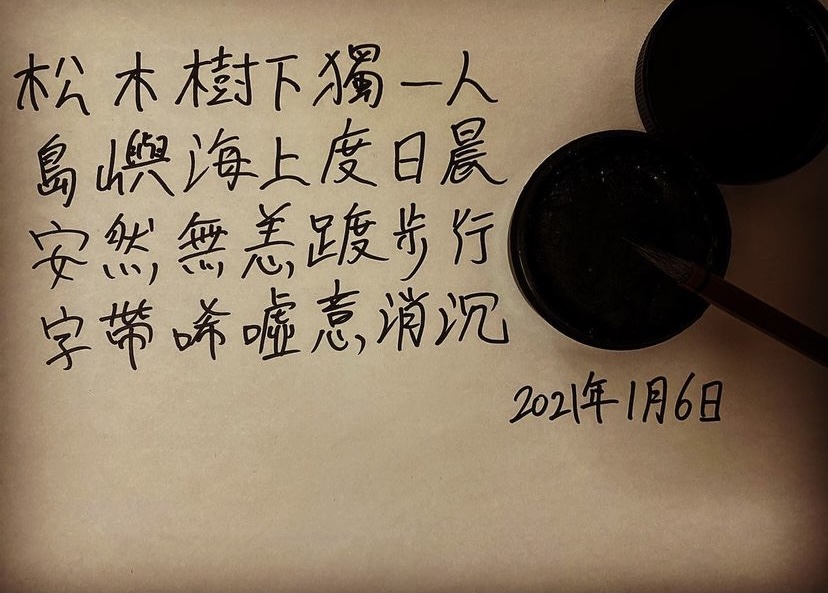 松木樹下獨一人
島嶼海上度日晨
安然無恙踱步行
字帶唏噓意消沉
2021年1月6日